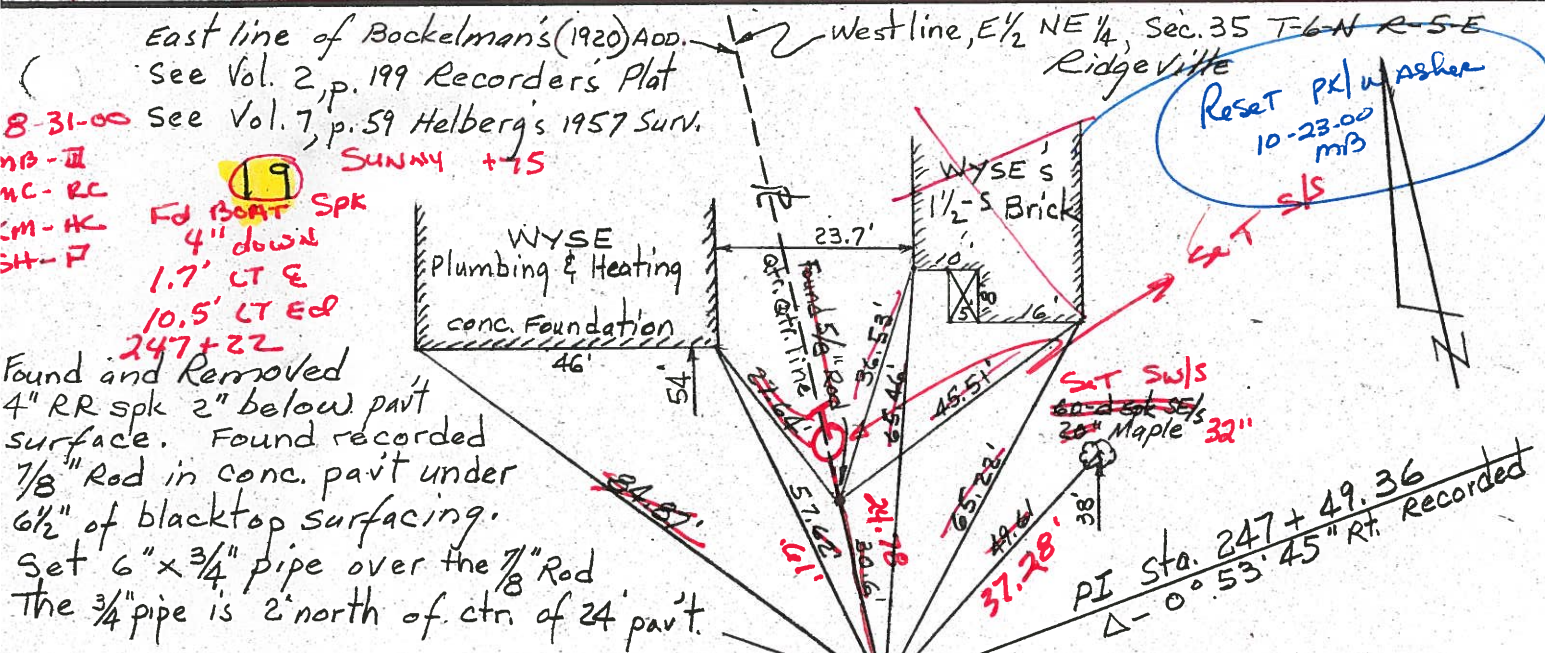 East line of Bockelman's (1920) ADD.
See Vol. 2, p. 199 Recorder's Plat
See Vol. 7, p. 59 Helberg's 1957 Surv.
West line, E½ NE ¼, Sec. 35 T-6-N R-5-E
Ridgeville
Reset PK/WAsher
10-23-00
MB
8-31-00
MB-III
MC-RC
SUNNY +75
19
Fd BOAT SPK
4" down
1.7' LT ℄
10.5' LT Ed
247+22
WYSE
Plumbing & Heating
conc. Foundation
46'
54'
23.7'
WYSE'S
1½-S Brick
10'
8'
5'
16'
Qtr. Qtr. Line
Found 5/8" Rod
SET S/S
27.64'
36.53'
65.46'
45.51'
84.87'
57.62'
.61'
30.6'
24.78
65.22'
49.61
37.28'
SET SW/S
60-d spk SE/s
20" Maple 32"
38'
N
Found and Removed
4" RR spk 2" below pav't
surface. Found recorded
7/8" Rod in conc. pav't under
6½" of blacktop surfacing.
Set 6" x ¾" pipe over the 7/8" Rod
The ¾" pipe is 2' north of ctr. of 24' pav't.
PI Sta. 247 + 49.36
Δ - 0° 53' 45" Rt. Recorded